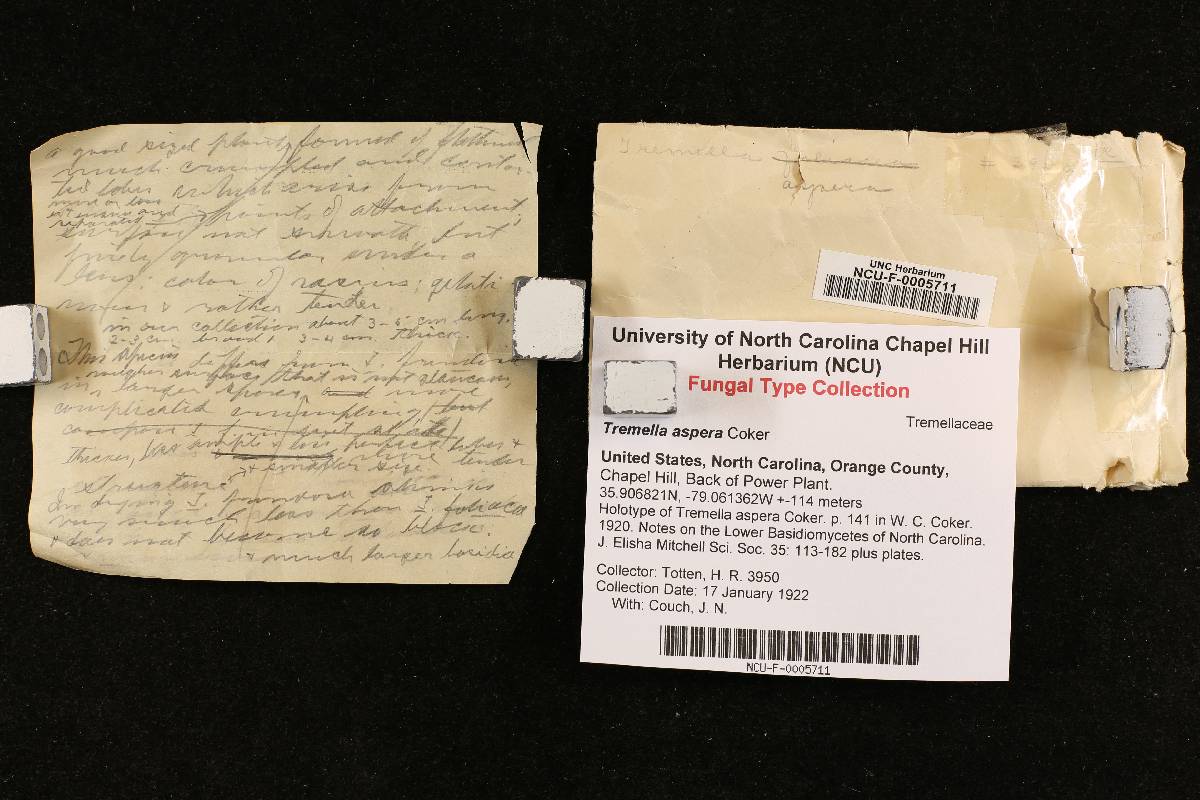 a good sized plant formed of flattened
much crumpled and contor-
ted lobes which arise from
more or less
points of attachment,
not smooth but
finely granular under a
lens. color of raisins; gelati
nous & rather tender.
In our collection about 3-5 cm long,
2-3 cm. broad, 3-4 cm. thick.
This species differs from T. frondosa
in larger spores and more
complicated crumpling, but
Thicker, less ample & less lobes &
& smaller size more tender
In drying T. frondosa shrinks
very much less than T. foliacea
& does not become so black.
& much larger basidia
Tremella
aspera
UNC Herbarium
NCU-F-0005711
University of North Carolina Chapel Hill
Herbarium (NCU)
Fungal Type Collection
Tremellaceae
Tremella aspera Coker
United States, North Carolina, Orange County,
Chapel Hill, Back of Power Plant.
35.906821N, -79.061362W +-114 meters
Holotype of Tremella aspera Coker. p. 141 in W. C. Coker.
1920. Notes on the Lower Basidiomycetes of North Carolina.
J. Elisha Mitchell Sci. Soc. 35: 113-182 plus plates.
Collector: Totten, H. R. 3950
Collection Date: 17 January 1922
With: Couch, J. N.
NCU-F-0005711